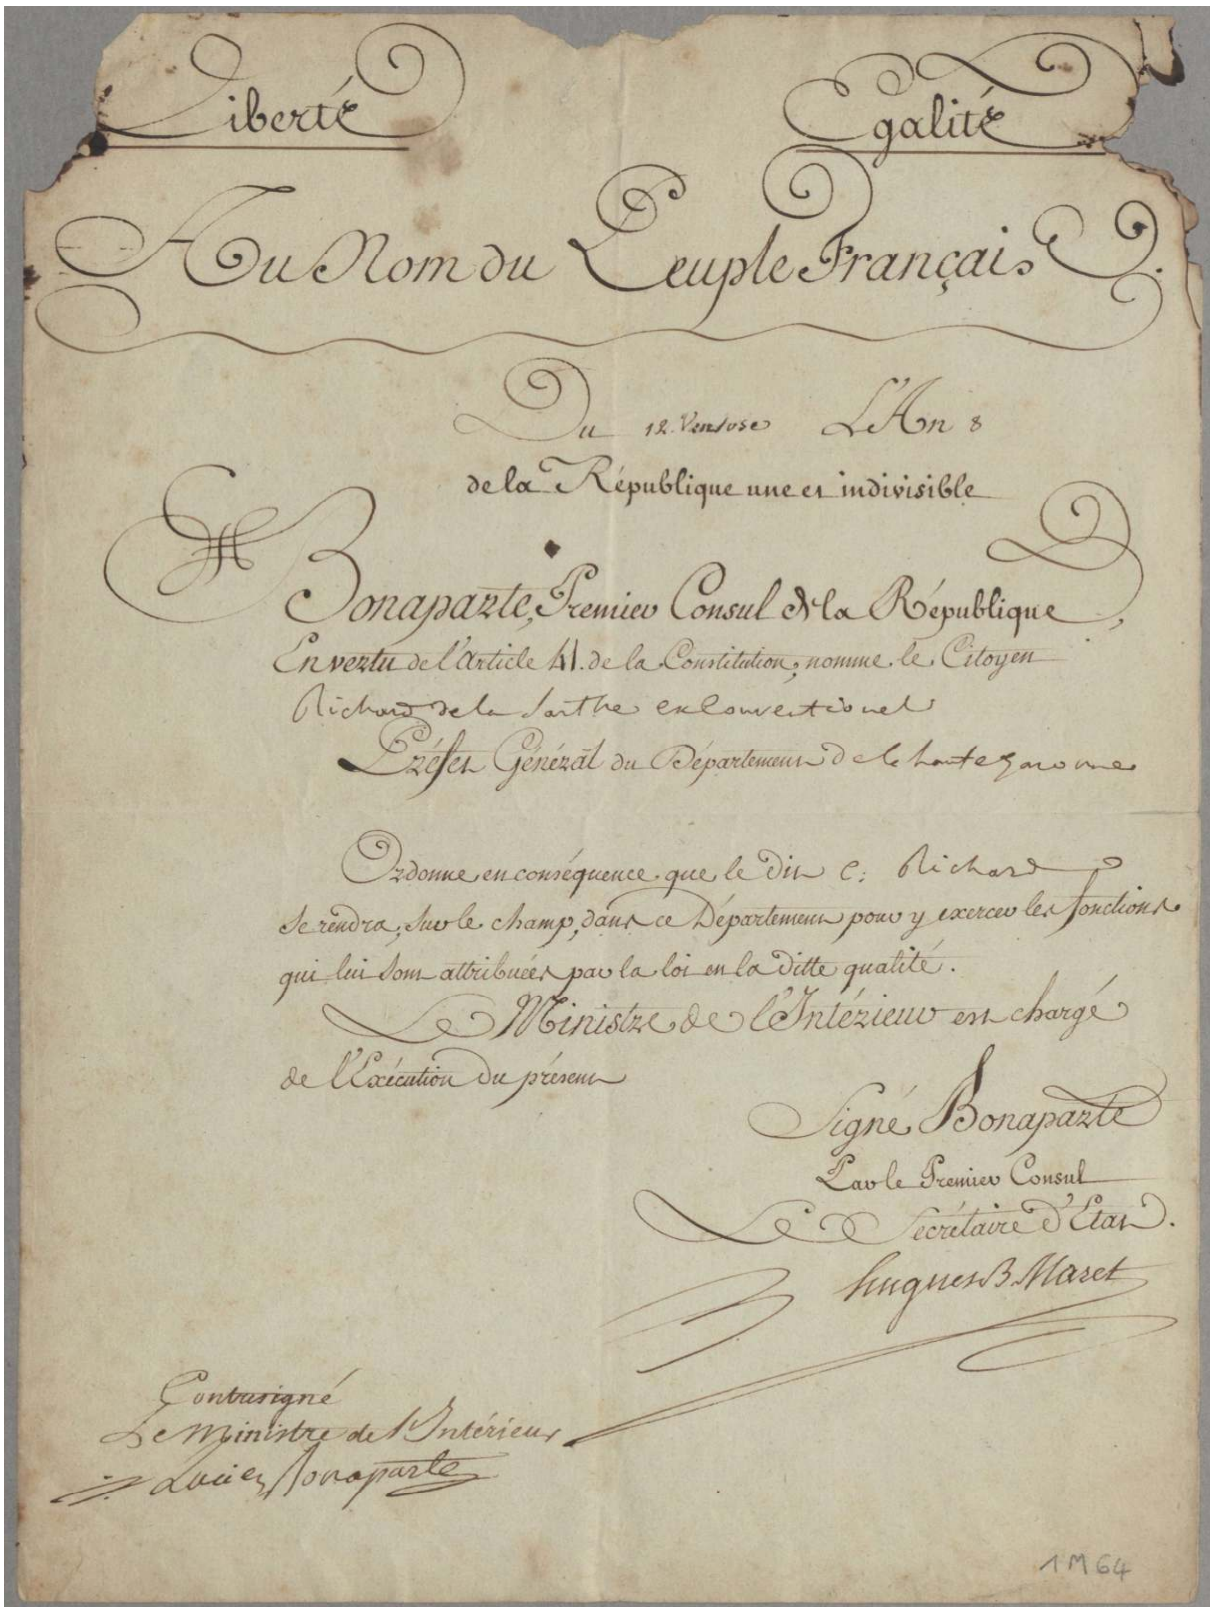 Liberté
Egalité
Au Nom du Peuple Français.
Du 12. Ventose L'An 8
de la République une et indivisible
Bonaparte, Premier Consul de la République,
En vertu de l'Article 41. de la Constitution, nomme le Citoyen
Richard de la Sarthe exConventionel
Préfet Général du Département de la haute garonne
Ordonne en conséquence que le dit C. Richard
se rendra, sur le champ, dans ce Département pour y exercer les fonctions
qui lui sont attribuées par la loi en la ditte qualité.
Le Ministre de l'Intérieur est chargé
de l'Exécution du présent
Signé Bonaparte
Par le Premier Consul
Le Secrétaire d'Etat.
hugues B Maret
Contresigné
Le Ministre de l'Intérieur
Lucien Bonaparte
1 M 64